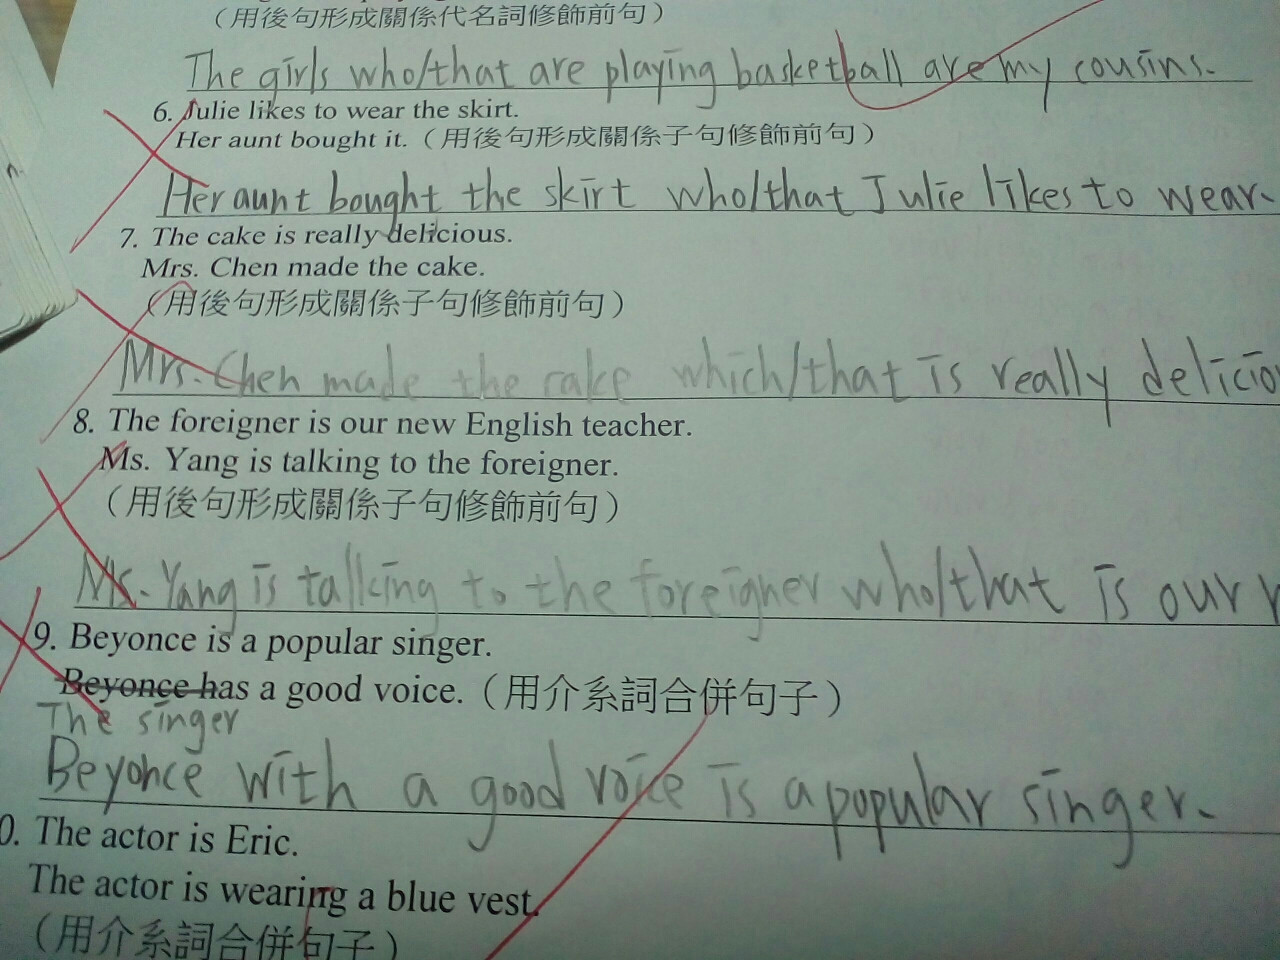 （用後句形成關係代名詞修飾前句）
The girls who/that are playing basketball are my cousins.
6. Julie likes to wear the skirt.
Her aunt bought it.（用後句形成關係子句修飾前句）
Her aunt bought the skirt who/that Julie likes to wear.
7. The cake is really delicious.
Mrs. Chen made the cake.
（用後句形成關係子句修飾前句）
Mrs. Chen made the cake which/that is really delicio
8. The foreigner is our new English teacher.
Ms. Yang is talking to the foreigner.
（用後句形成關係子句修飾前句）
Ms. Yang is talking to the foreigner who/that is our n
9. Beyonce is a popular singer.
Beyonce has a good voice.（用介系詞合併句子）
The singer
Beyonce with a good voice is a popular singer.
0. The actor is Eric.
The actor is wearing a blue vest.
（用介系詞合併句子）